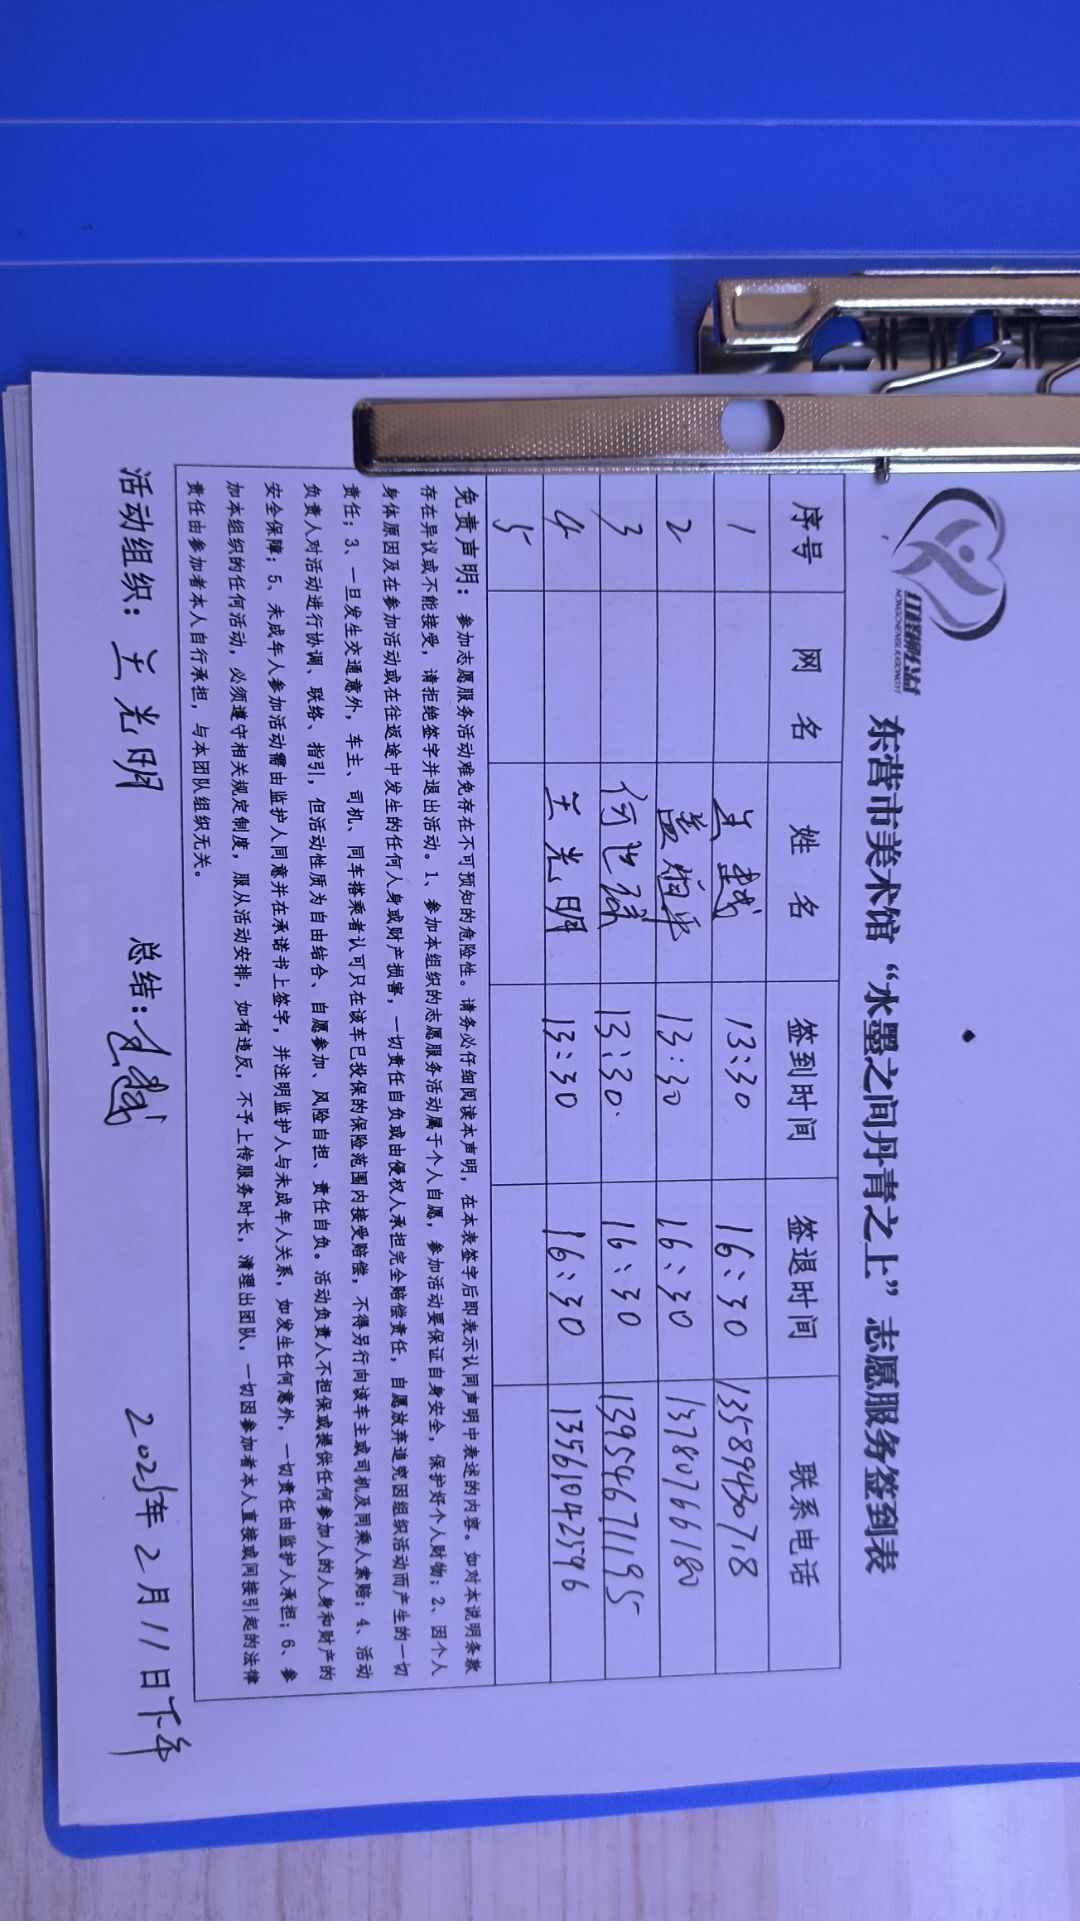 HONGCHENGLUGONGYI
东营市美术馆“水墨之间丹青之上”志愿服务签到表
序号 网名 姓名 签到时间 签退时间 联系电话
1 13:30 16:30 13589430718
2 13:30 16:30 13780766180
3 13:30. 16:30 13954671195
4 王光明 13:30 16:30 13561042596
5
免责声明：参加志愿服务活动难免存在不可预知的危险性。请务必仔细阅读本声明，在本表签字后即表示认同声明中表述的内容。如对本说明条款
存在异议或不能接受，请拒绝签字并退出活动。1、参加本组织的志愿服务活动属于个人自愿，参加活动要保证自身安全，保护好个人财物；2、因个人
身体原因及在参加活动或在往返途中发生的任何人身或财产损害，一切责任自负或由侵权人承担完全赔偿责任，自愿放弃追究因组织活动而产生的一切
责任；3、一旦发生交通意外，车主、司机、同车搭乘者认可只在该车已投保的保险范围内接受赔偿，不得另行向该车主或司机及同乘人索赔；4、活动
负责人对活动进行协调、联络、指引，但活动性质为自由结合、自愿参加、风险自担、责任自负。活动负责人不担保或提供任何参加人的人身和财产的
安全保障；5、未成年人参加活动需由监护人同意并在承诺书上签字，并注明监护人与未成年人关系，如发生任何意外，一切责任由监护人承担；6、参
加本组织的任何活动，必须遵守相关规定制度，服从活动安排，如有违反，不予上传服务时长，清理出团队，一切因参加者本人直接或间接引起的法律
责任由参加者本人自行承担，与本团队组织无关。
活动组织：王光明 总结： 2025年2月11日下午